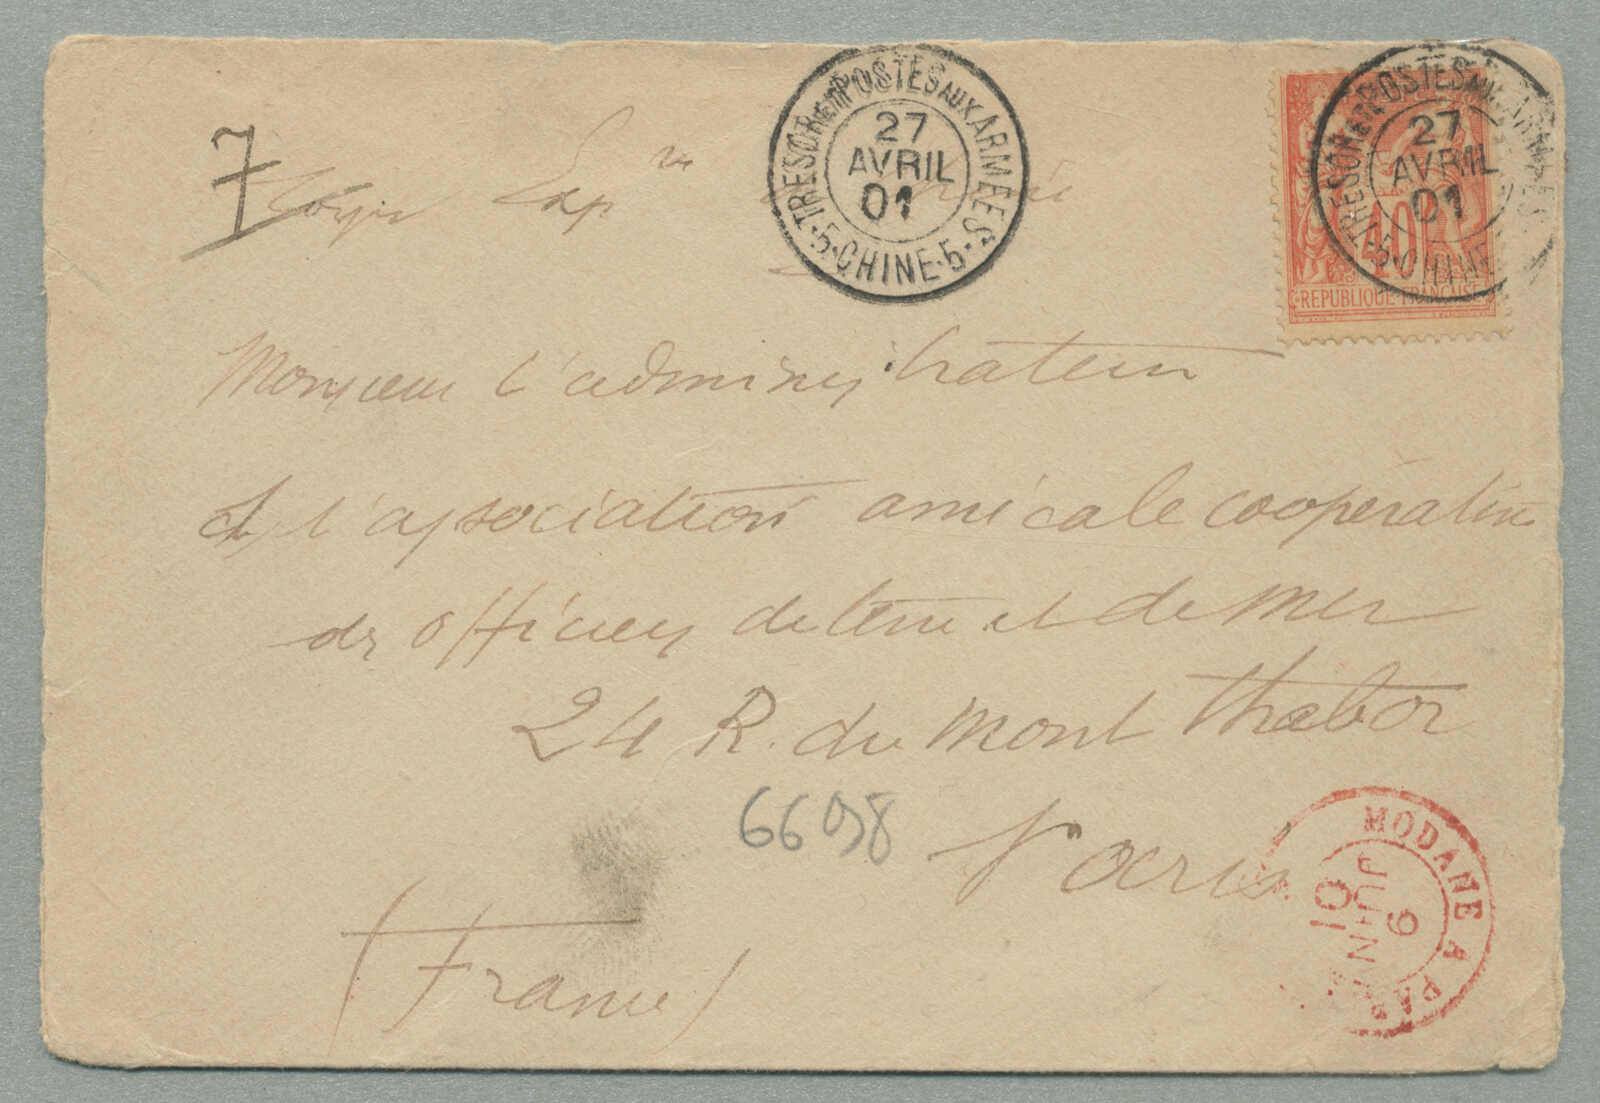 TRESOR ET POSTES AUX ARMEES
27
AVRIL
01
5 · CHINE · 5
TRESOR ET POSTES AUX ARMEES
27
AVRIL
01
5 · CHINE
40
REPUBLIQUE FRANÇAISE
7
Corps Exp
Monsieur l'administrateur
de l'association amicale coopérative
des officiers de terre et de mer
24 R. du Mont Thabor
6698
Paris
(France)
MODANE A PAR
9
JUIN
01